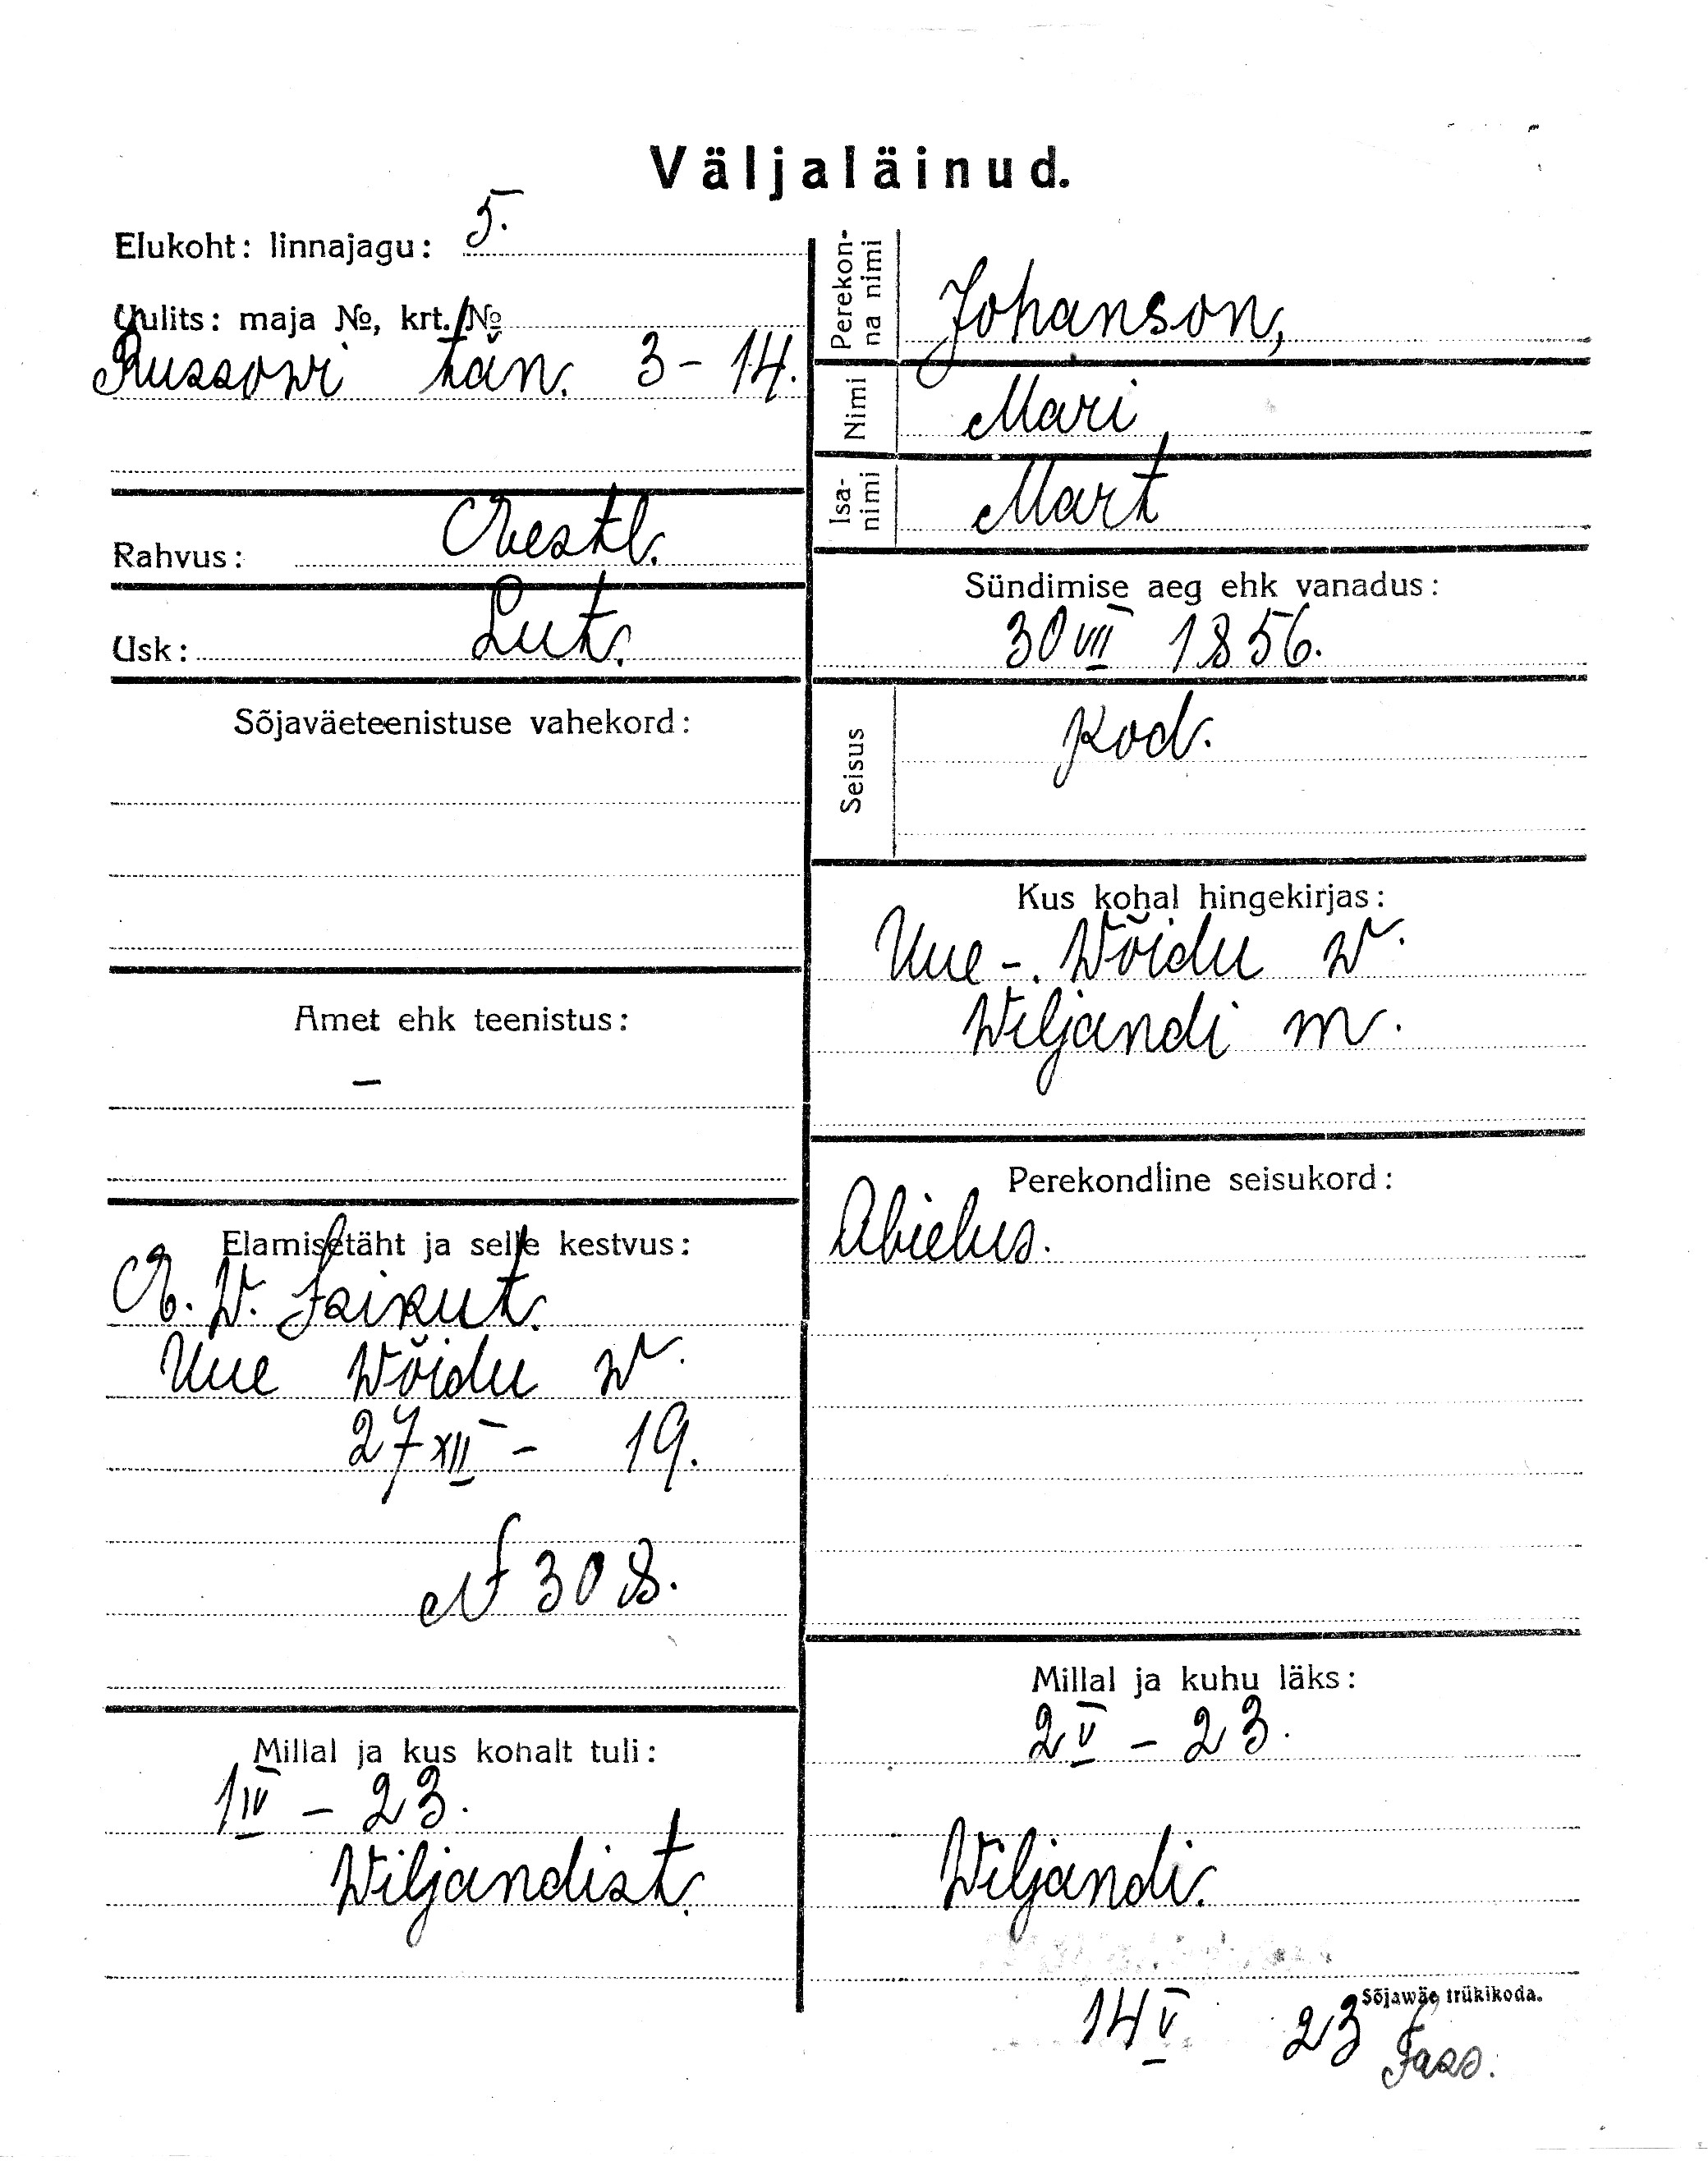 Väljaläinud.
Elukoht: linnajagu: 5.
Uulits: maja №, krt. №
Russowi tän. 3 - 14.
Rahvus: Eestl.
Usk: Lut.
Sõjaväeteenistuse vahekord:
Amet ehk teenistus:
—
Elamisetäht ja selle kestvus:
E. W. Isikut.
Uue Wõidu w.
27 XII - 19.
№ 308.
Millal ja kus kohalt tuli:
1 IV - 23.
Wiljandist.
Perekonna nimi Johanson,
Nimi Mari
Isanimi Mart
Sündimise aeg ehk vanadus:
30 VII 1856.
Seisus Kod.
Kus kohal hingekirjas:
Uue-Wõidu w.
Wiljandi m.
Perekondline seisukord:
Abielus.
Millal ja kuhu läks:
2 V - 23.
Wiljandi.
Sõjawäe trükikoda.
14 V 23